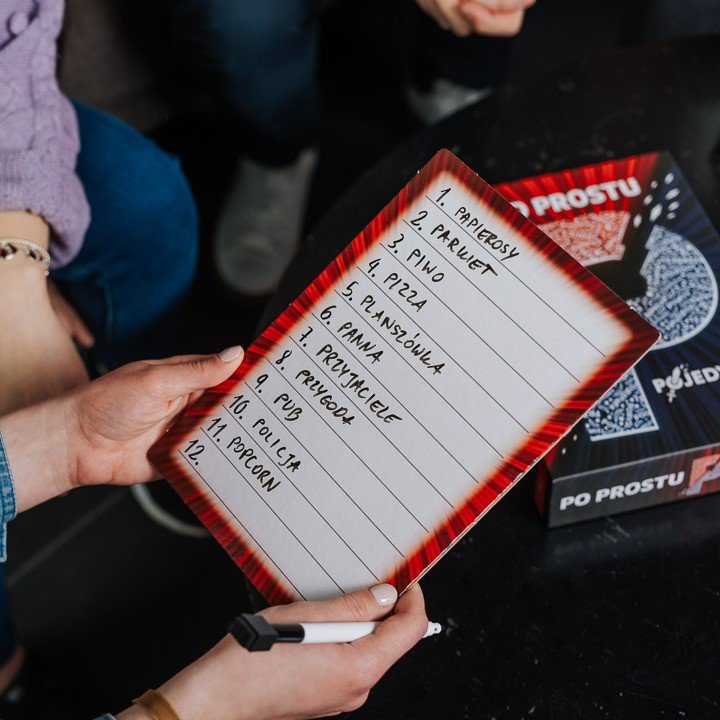 1. PAPIEROSY
2. PARKIET
3. PIWO
4. PIZZA
5. PLANSZÓWKA
6. PANNA
7. PRZYJACIELE
8. PRZYGODA
9. PUB
10. POLICJA
11. POPCORN
12.
PO PROSTU
POJEDY
PO PROSTU